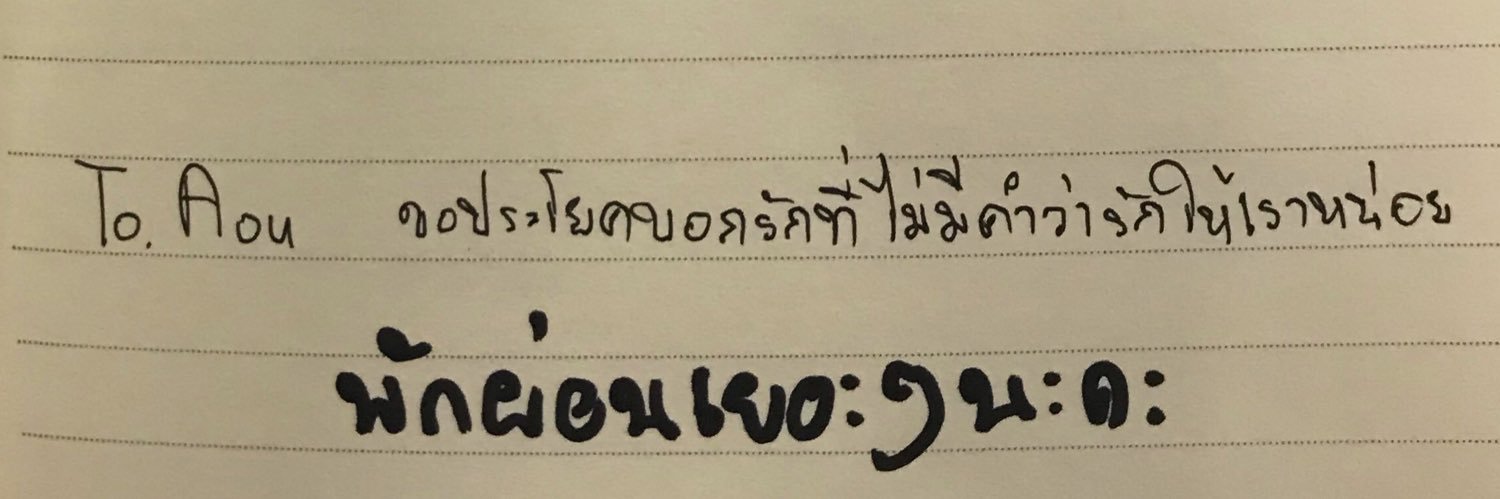 To. Aou ขอประโยคบอกรักที่ไม่มีคำว่ารักให้เราหน่อย
พักผ่อนเยอะๆนะคะ